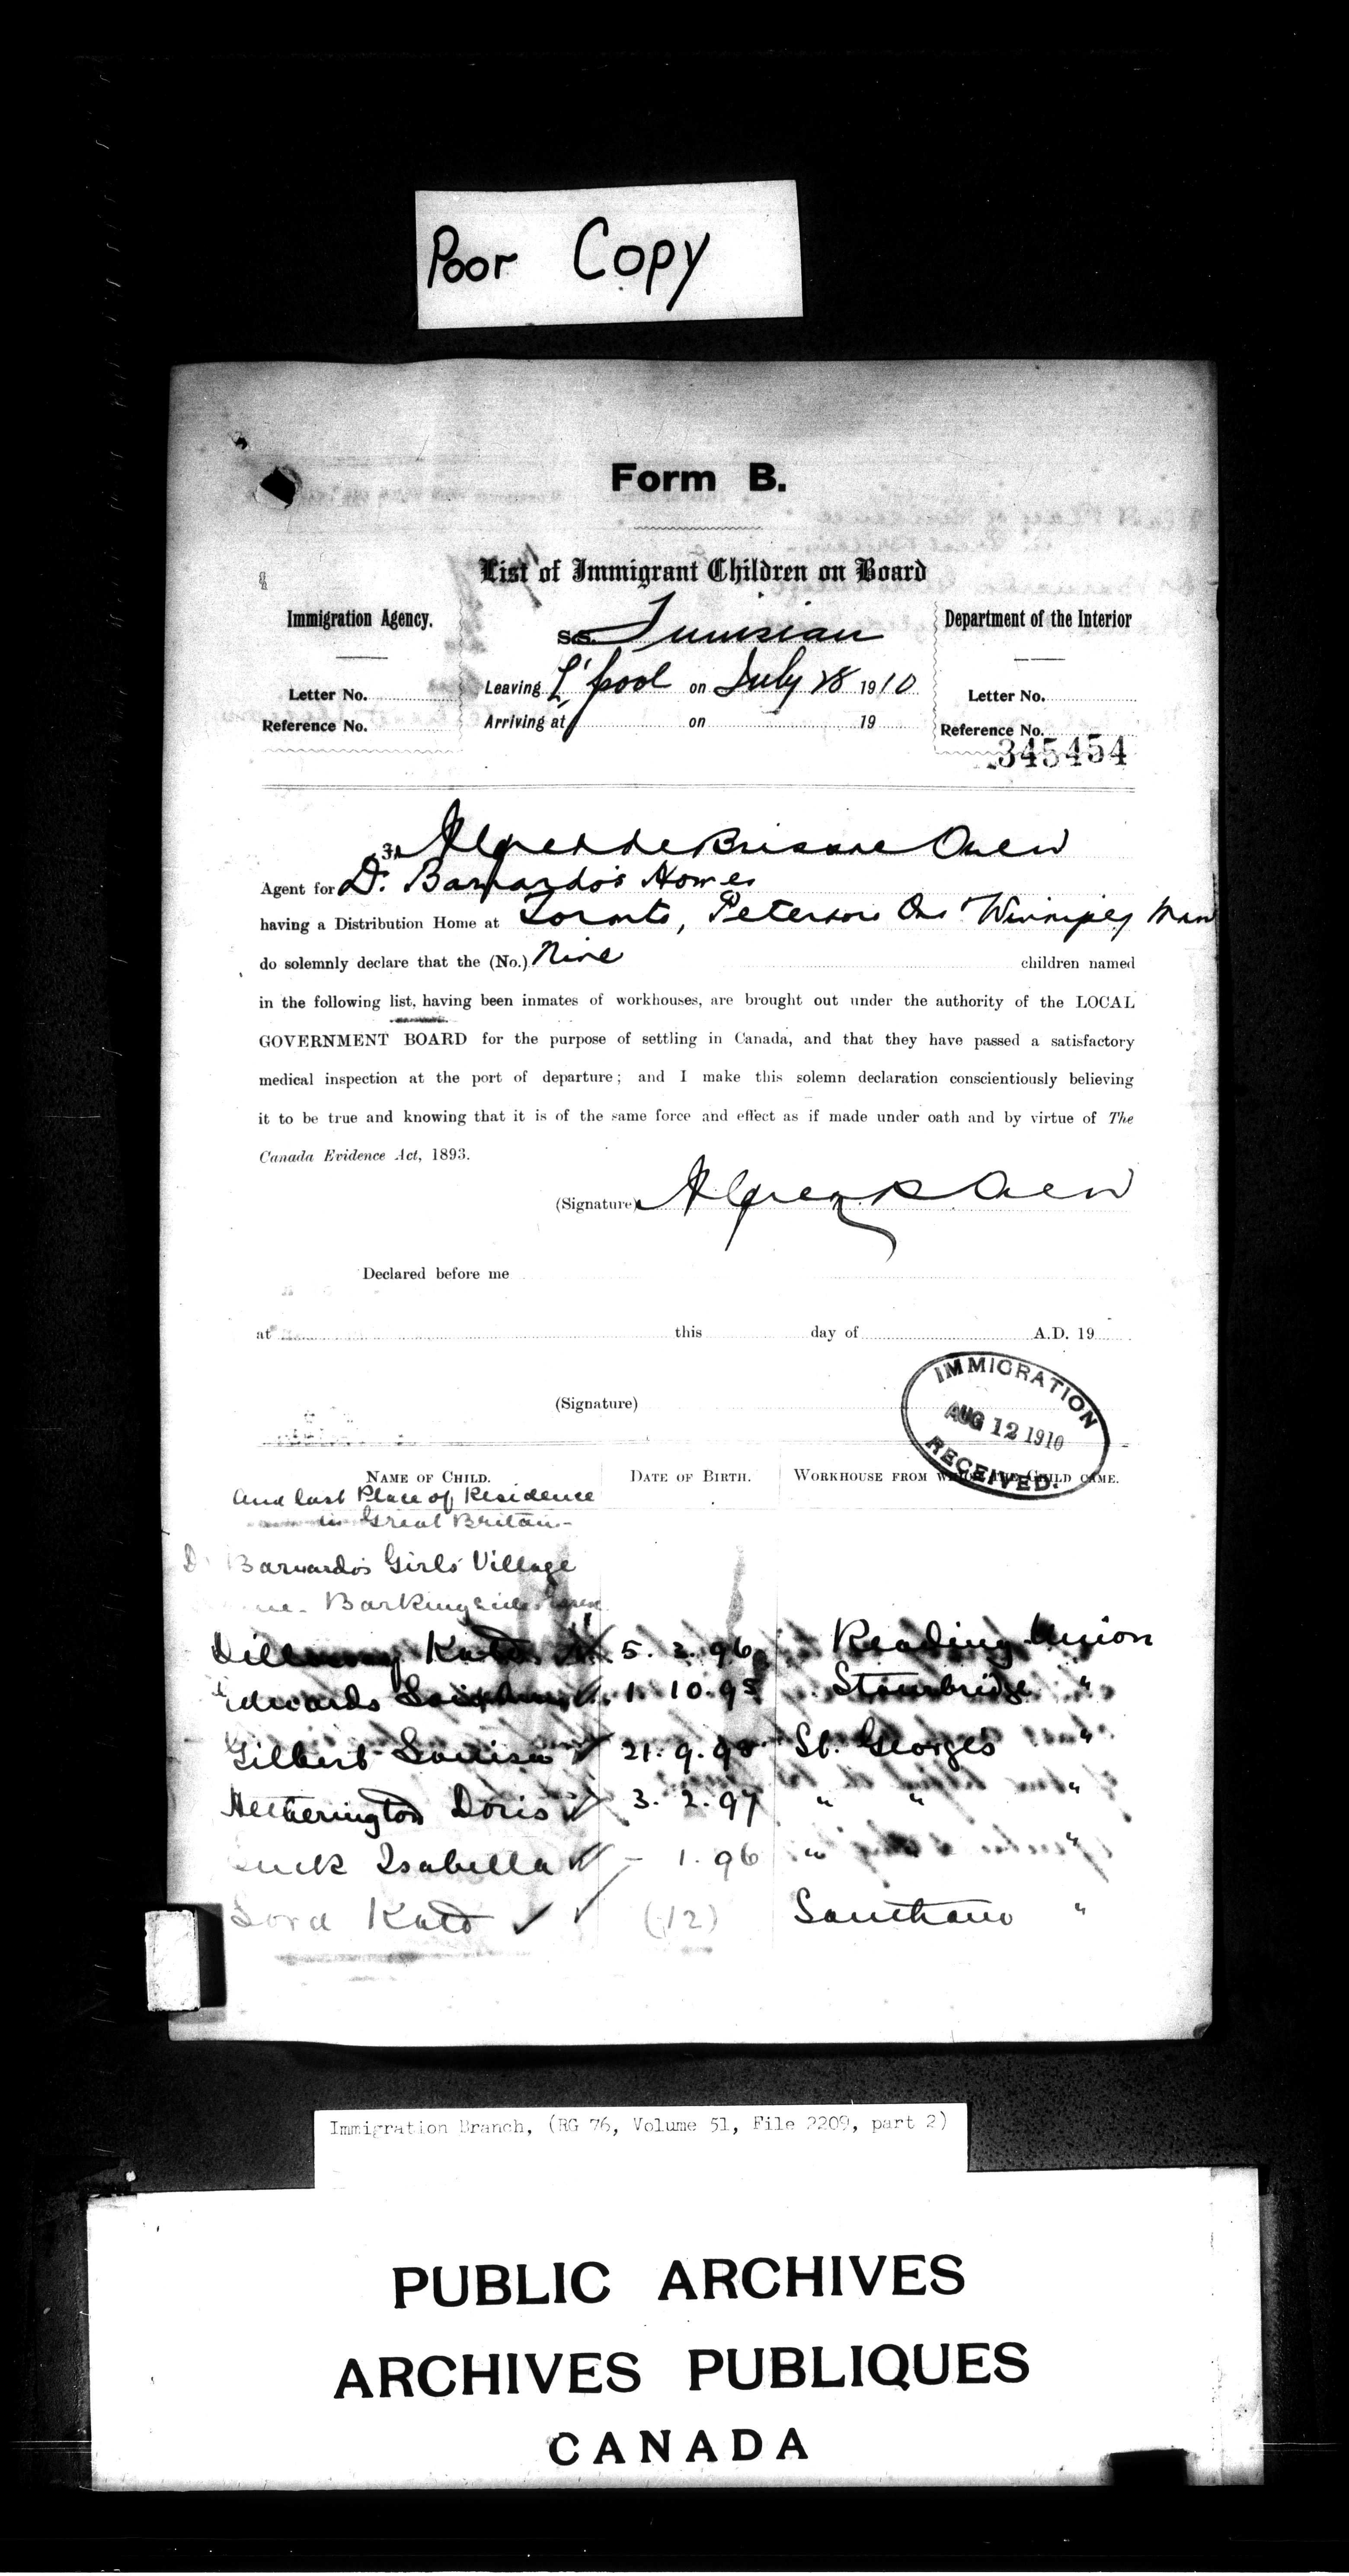 Poor Copy
Form B.
List of Immigrant Children on Board
Immigration Agency.
S.S. Tunisian
Department of the Interior
Letter No.
Leaving L'pool on July 28 1910
Letter No.
Reference No.
Arriving at on 19
Reference No.
345454
I, Alfred de Brissac Owen
Agent for Dr. Barnardo's Homes
having a Distribution Home at Toronto, Peterboro Ont Winnipeg Man
do solemnly declare that the (No.) Nine children named
in the following list, having been inmates of workhouses, are brought out under the authority of the LOCAL
GOVERNMENT BOARD for the purpose of settling in Canada, and that they have passed a satisfactory
medical inspection at the port of departure; and I make this solemn declaration conscientiously believing
it to be true and knowing that it is of the same force and effect as if made under oath and by virtue of The
Canada Evidence Act, 1893.
(Signature) Alfred B Owen
Declared before me
at this day of A.D. 19
(Signature)
IMMIGRATION
AUG 12 1910
RECEIVED.
NAME OF CHILD. DATE OF BIRTH. WORKHOUSE FROM WHICH THE CHILD CAME.
and last Place of Residence
in Great Britain
Dr Barnardo's Girls' Village
Barkingside Essex
Kate 5. 2. 96 Reading Union
Edwards 1. 10. 98 Stourbridge "
Gilbert Louisa 21. 9. 98 St. George's "
Hetherington Doris 3. 2. 97 " " "
Isabella - 1. 96 " "
Lord Kate (12) Southam "
Immigration Branch, (RG 76, Volume 51, File 2209, part 2)
PUBLIC ARCHIVES
ARCHIVES PUBLIQUES
CANADA